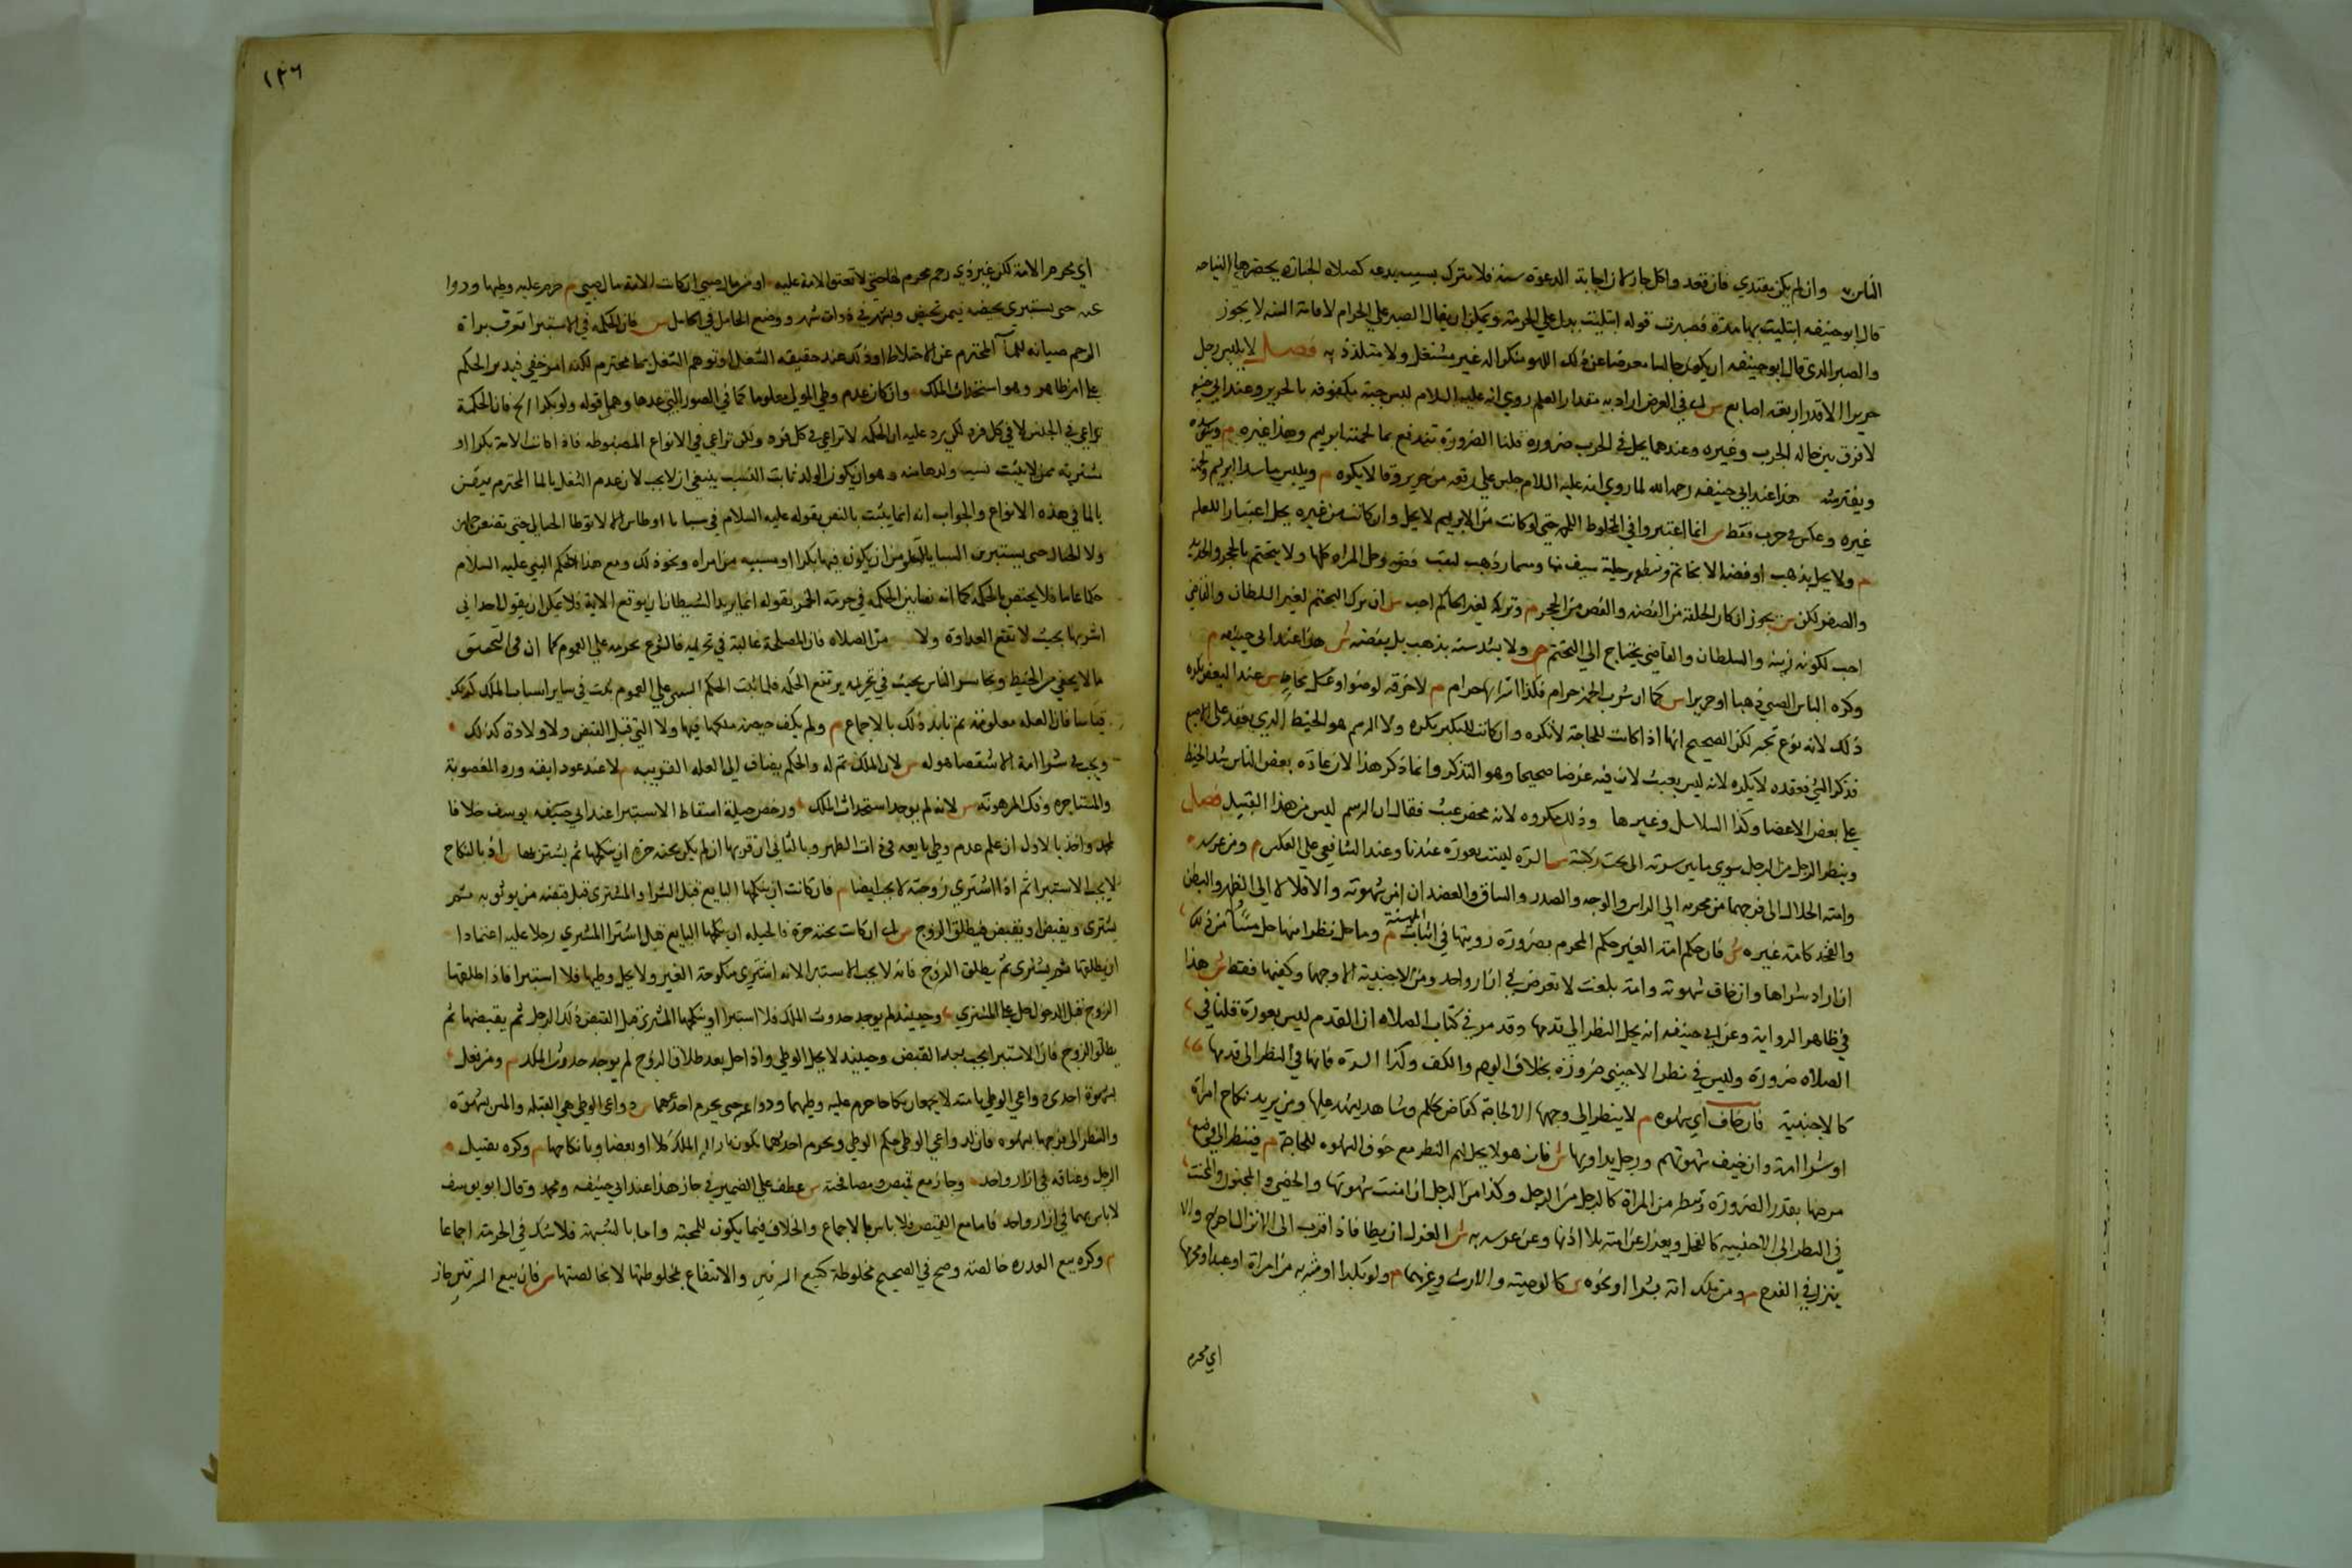 الناس وان لم يكن يقتدي فان قعد واكل جاز لان اجابة الدعوة سنة فلا تترك بسبب بدعه كصلاه الجنازه يحضرها النياحه
قال ابو حنيفه ابتليت بهذا مرة فصبرت قوله ابتليت يدل علي الحرمة ويمكن ان يقال الصبر علي الحرام لاقامة السنه لا يجوز
والصبر الذي قال ابو حنيفه ان يكون جالسا معرضا عن ذلك اللهو منكرا له غير مشتغل ولا متلذذ به فصل لا يلبس رجل
حريرا الا قدر اربعة اصابع س اي في العرض اراد به مقدار العلم روي انه عليه السلام لبس جبة مكفوفه بالحرير وعند ابي حنيفه
لا فرق بين حاله الحرب وغيره وعندهما يحل في الحرب ضرورة قلنا الضرورة تندفع بما لحمته ابريسم وسداه غيره م ويتوسده
ويفترشه هذا عند ابي حنيفه رحمه الله لما روي انه عليه السلام جلس علي مرفقه من حرير وقالا يكره م ويلبس ما سداه ابريسم ولحمته
غيره وعكسه في حرب فقط س انما اعتبروا في المخلوط اللحمه حتي لو كانت من الابريسم لا يحل وان كانت من غيره يحل اعتبارا للعله
م ولا يحل بذهب او فضه الا بخاتم ومنطقه وحلية سيف منها ومسمار ذهب لثقب فص وحل للمراه كلها ولا يتختم بالحجر والحديد
والصفر لكن س يجوز ان كان الحلقه من الفضه والفص من الحجر م وتركه لغير الحاكم احب س اي ترك التختم لغير السلطان والقاضي
احب لكونه زينه والسلطان والقاضي يحتاج الي التختم ص ولا يشد سنه بذهب بل بفضه ش هذا عند ابي حنيفه م
وكره الباس الصبي ذهبا او حريرا س كما ان شرب الخمر حرام فكذا اشرابها حرام م لا خرقه لوضوء او مخاط س عند البعض يكره
ذلك لانه نوع تجبر لكن الصحيح انها اذا كانت للحاجة لا تكره وان كانت للتكبر يكره ولا الرتم هو الخيط الذي يعقد علي الاصبع
فذكر الشي فعقده لا يكره لانه ليس بعبث لان فيه غرضا صحيحا وهو التذكر وانما ذكر هذا لان عادة بعض الناس شد الخيط
علي بعض الاعضا وكذا السلاسل وغيرها وذلك مكروه لانه محض عبث فقال ان الرسم ليس من هذا القبيل فصل
وينظر الرجل من الرجل سوي ما بين سرته الي تحت ركبته س السرة ليست بعورة عندنا وعند الشافعي علي العكس م ومن عرسه
وامته الحلال الي فرجهما من محرمه الي الراس والوجه والصدر والساق والعضد ان امن شهوته والا فلا لا الي الظهر والبطن
والفخد كامة غيره ش فان حكم امة الغير حكم المحرم بضرورة رويتها في ثياب المهنة م وما حل نظرا منهما حل مسا من ذلك
ان اراد شراها وان خاف شهوته وامة بلغت لا تعرض في ازار واحد ومن الاجنبية الا وجهها وكفيها فقط ش هذا
في ظاهر الرواية وعن ابي حنيفه انه يحل النظر الي قدمها وقد مر في كتاب الصلاه ان القدم ليس بعورة قلنا في
الصلاه ضرورة وليس في نظر الاجنبي ضرورة بخلاف الوجه والكف وكذا السرة فانها في النظر الي قدمها
كالاجنبية فان خاف اي شهوه م لا ينظر الي وجهها الا لحاجة كقاض يحكم وشاهد يشهد عليها ومن يريد نكاح امراة
او شرا امة وان خيف شهوتهم ورجل يداويها ش فان هولا يحل لهم النظر مع خوف الشهوه للحاجة م فينظر الي موضع
مرضها بقدر الضرورة وتنظر من المراة كالرجل من الرجل وكذا من الرجل ان امنت شهوتها والخصي والمجنون والمخنث
في النظر الي الاجنبيه كالفحل ويعزل عن امته بلا اذنها وعن عرسه به ش العزل ان يطا فاذا اقرب الي الانزال اخرج ولا
ينزل في الفرج م ومن ملك امة بشرا او نحوه س كالوصية والارث وغيرهما م ولو بكرا او مشريه من امراة او عبد او محرمها
اي محرم
١٣٦
اي محرم الامة لكن غير ذي رحم محرم لها حتي لا تعتق الامة عليه او من مال صبي ان كانت الامة مال صبي م حرم عليه وطيها ودوا
عيه حتي يستبري بحيضه فيمن تحيض وبشهر في ذوات شهر ووضع الحامل في الحامل س فان الحكمه في الاستبرا تعرف براة
الرحم صيانه للماء المحترم عن الاختلاط وذلك عند حقيقه الشغل او توهم الشغل بما محترم لكنه امر خفي فيدير الحكم
علي امر ظاهر وهو استحداث الملك وان كان عدم وطي المولي معلوما كما في الصور التي عدها وهي قوله ولو بكرا الخ فان الحكمة
تراعي في الجنس لا في كل فرد لكن يرد عليه ان الحكمه لا تراعي في كل فرد ولكن تراعي في الانواع المضبوطه فاذا كانت الامة بكرا او
مشريه ممن لا يثبت نسب ولدها منه وهو ان يكون الولد ثابت النسب ينبغي ان لا يجب لان عدم الشغل بالما المحترم متيقن
بالما في هذه الانواع والجواب انه انما يثبت بالنص بقوله عليه السلام في سبايا اوطاس الا لا توطا الحبالي حتي تضعن حملهن
ولا الحيال حتي يستبرين السبايا لا تخلو من ان يكون فيها بكرا او مسبيه من امراه ونحو ذلك ومع هذا حكم النبي عليه السلام
حكما عاما فلا يختص بالحكمه كما انه تعالي بين الحكمه في حرمة الخمر بقوله انما يريد الشيطان ان يوقع الاية فلا يمكن ان يقول احد اني
اشربها بحيث لا تقع العداوة ولا من الصلاه فان المصلحة غالبة في تحريمه فالشرع حرمه علي العموم كما ان في التحقيق
ما لا يخفي من الخبط وتجاسر الناس بحيث في تحريمه يرتفع الحكمه فلما ثبت الحكم علي العموم ثبت في ساير اسباب الملك كذلك
قياسا فان العله معلومة ثم تايد ذلك بالاجماع م ولم يكف حيضه ملكها فيها ولا التي قبل القبض ولا ولادة كذلك
ويجب في شرا امة الا شقصا هو له س لان الملك تم له والحكم يضاف الي العله القريبه م لا عند عود ابقه ورد المغصوبة
والمستاجره وفك المرهونة س لانه لم يوجد استحداث الملك ورخص حيلة اسقاط الاستبرا عند ابي يوسف خلافا
لمحمد واخذ بالاول ان علم عدم وطي بايعه في ذات الطهر وبالثاني ان قربها ان لم يكن تحته حرة ان ينكحها ثم يشتريها س اذ بالنكاح
لا يجب الاستبرا ثم اذا اشتري زوجته لا يجب ايضا م فان كانت ان ينكحها البايع قبل الشرا والمشتري قبل قبضه من يوثق به ثم
يشتري ويقبض او يقبض فيطلق الزوج س اي ان كانت تحته حرة فالحيله ان ينكحها البايع قبل شرا المشتري رجلا عليه اعتماد ان
ان يطلقها ثم يشتري ثم يطلق الزوج فانه لا يجب الاستبرا لانه اشتري منكوحة الغير ولا يحل وطيها فلا استبرا فاذا طلقها
الزوج قبل الدخول حل علي المشتري وحينئذ لم يوجد حدوث الملك فلا استبرا او ينكحها المشتري قبل القبض ذلك الرجل ثم يقبضها ثم
يطلق الزوج فان الاستبرا يجب بعد القبض وحينئذ لا يحل الوطي واذا حل بعد طلاق الزوج لم يوجد حدوث الملك م ومن فعل
بشهوة احدي دواعي الوطي بامتيه لا يجتمعان نكاحا حرم عليه وطيهما ودواعيه حتي يحرم احدهما س دواعي الوطي هي القبله والمس بشهوة
والنظر الي فرجها بشهوه فان لدواعي الوطي حكم الوطي وتحرم احدهما تكون بازالة الملك كلا او بعضا وبانكاحها م وكره تقبيل
الرجل وعناقه في ازار واحد وجاز مع قميص ومصافحته س عطف علي الضمير في جاز هذا عند ابي حنيفه ومحمد وقال ابو يوسف
لا باس بهما في ازار واحد فاما مع القميص فلا باس بالاجماع والخلاف فيما يكون للمحبة واما بالشهوة فلا شك في الحرمة اجماعا
م وكره بيع العذره خالصة وصح في الصحيح مخلوطة كبيع السرقين والانتفاع بمخلوطتها لا بخالصتها س فان بيع السرقين جاز